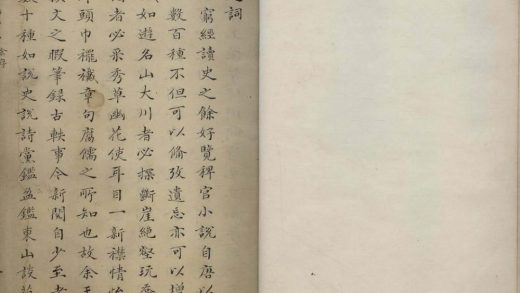 詞
窮經讀史之餘好覽稗官小說自唐以
數百種不但可以備攷遺忘亦可以增
如遊名山大川者必探斷崖絕壑玩喬
者必采秀草幽花使耳目一新襟情怡
頭巾褦襶章句腐儒之所知也故余
撰文之暇筆錄古軼事今新聞自少至老
數十種如說史說詩黨鑑盈鑑東山談苑